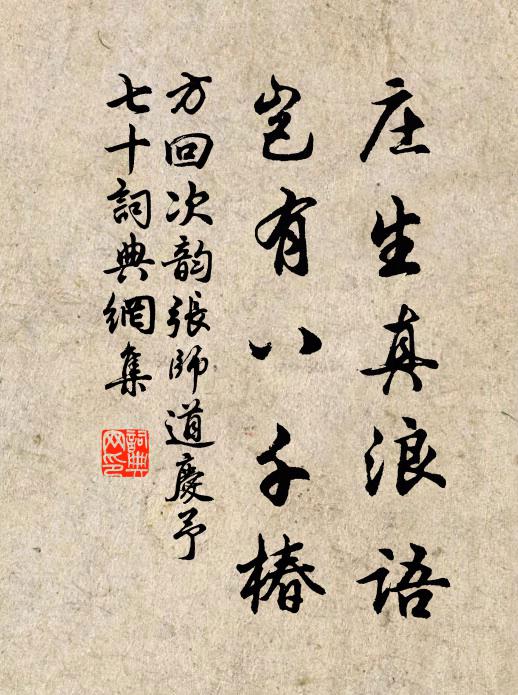 庄生真浪语
岂有八千椿
方回次韵张师道庆予
七十詞典網集
詞典网印